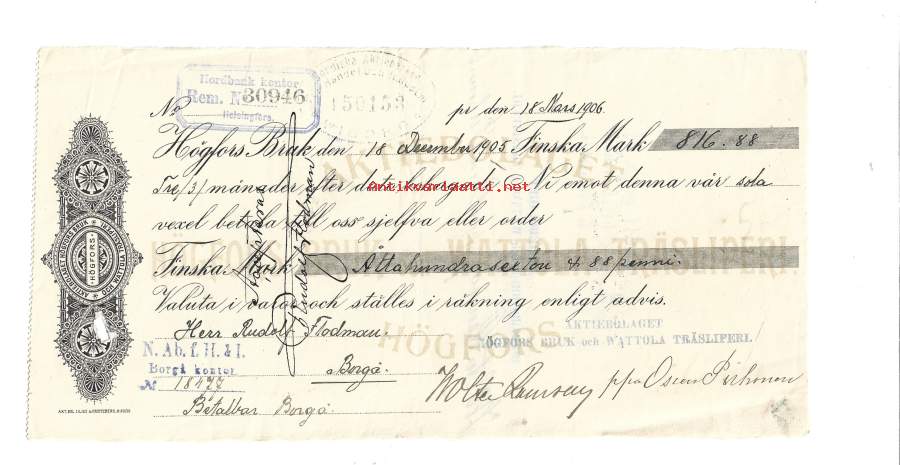 Nordbank kontor
Rem. No 30946
Helsingfors.
150153
No pr den 18 Mars 1906.
Högfors Bruk den 18 December 1905 Finska Mark 816.88
Tre /3/ månader efter dato behagade Ni emot denna vår sola
Antikvariaatti.net
vexel betala till oss sjelfva eller order
Finska Mark Åttahundrasexton & 88 penni.
Valuta i varor och ställes i räkning enligt advis.
Herr Rudolf Flodman.
Borgå.
Betalbar Borgå.
Rudolf Flodman
N. Ab. f. H. & I.
Borgå kontor
No 18477
AKTIEBOLAGET
HÖGFORS BRUK och WATTOLA TRÄSLIPERI.
Wolter Ramsay ppa Oscar Pirhonen
AKTIEBOLAGET
HÖGFORS BRUK WATTOLA TRÄSLIPERI
HÖGFORS
AKTIEBOLAGET HÖGFORS BRUK
HÖGFORS
OCH WATTOLA TRÄSLIPERI